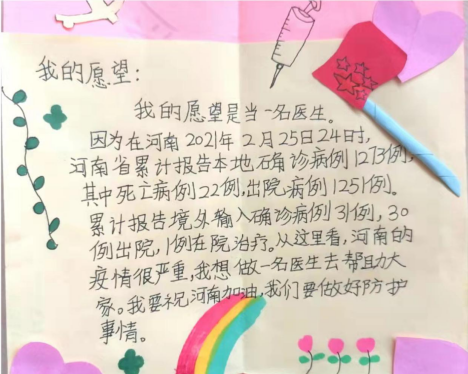 我的愿望：
我的愿望是当一名医生。
因为在河南2021年2月25日24时,
河南省累计报告本地确诊病例1273例,
其中死亡病例22例,出院病例1251例。
累计报告境外输入确诊病例31例,30
例出院,1例在院治疗。从这里看,河南的
疫情很严重,我想做一名医生去帮助大
家。我要祝河南加油,我们要做好防护
事情。